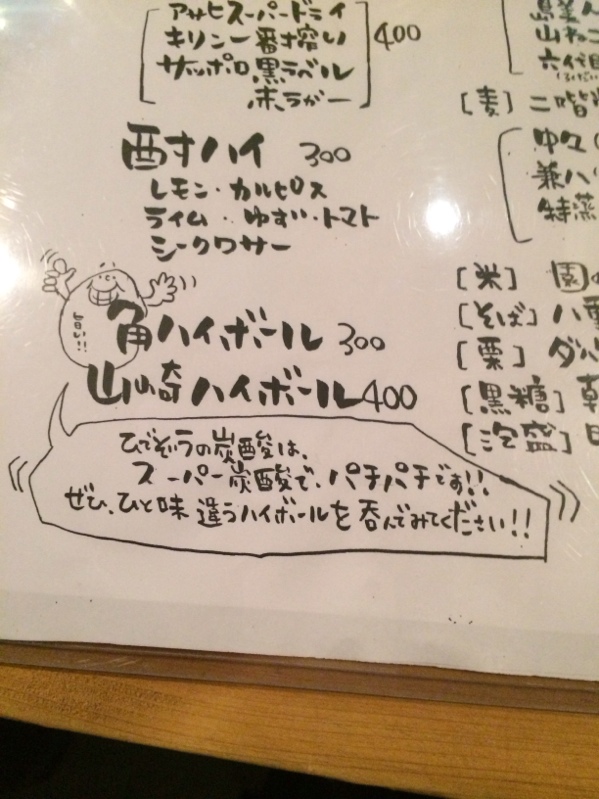 アサヒスーパードライ
キリン一番搾り 400
サッポロ黒ラベル
赤ラガー
酎ハイ 300
レモン・カルピス
ライム・ゆず・トマト
シークワサー
旨い!!
角ハイボール 300
山崎ハイボール 400
ひでぞうの炭酸は、
スーパー炭酸で、パチパチです!!
ぜひ、ひと味違うハイボールを呑んでみてください!!
山ねこ
六代目
[麦] 二階
中々
兼八
特蒸
[米] 園
[そば] 八重
[栗] ダバ
[黒糖] 朝
[泡盛]